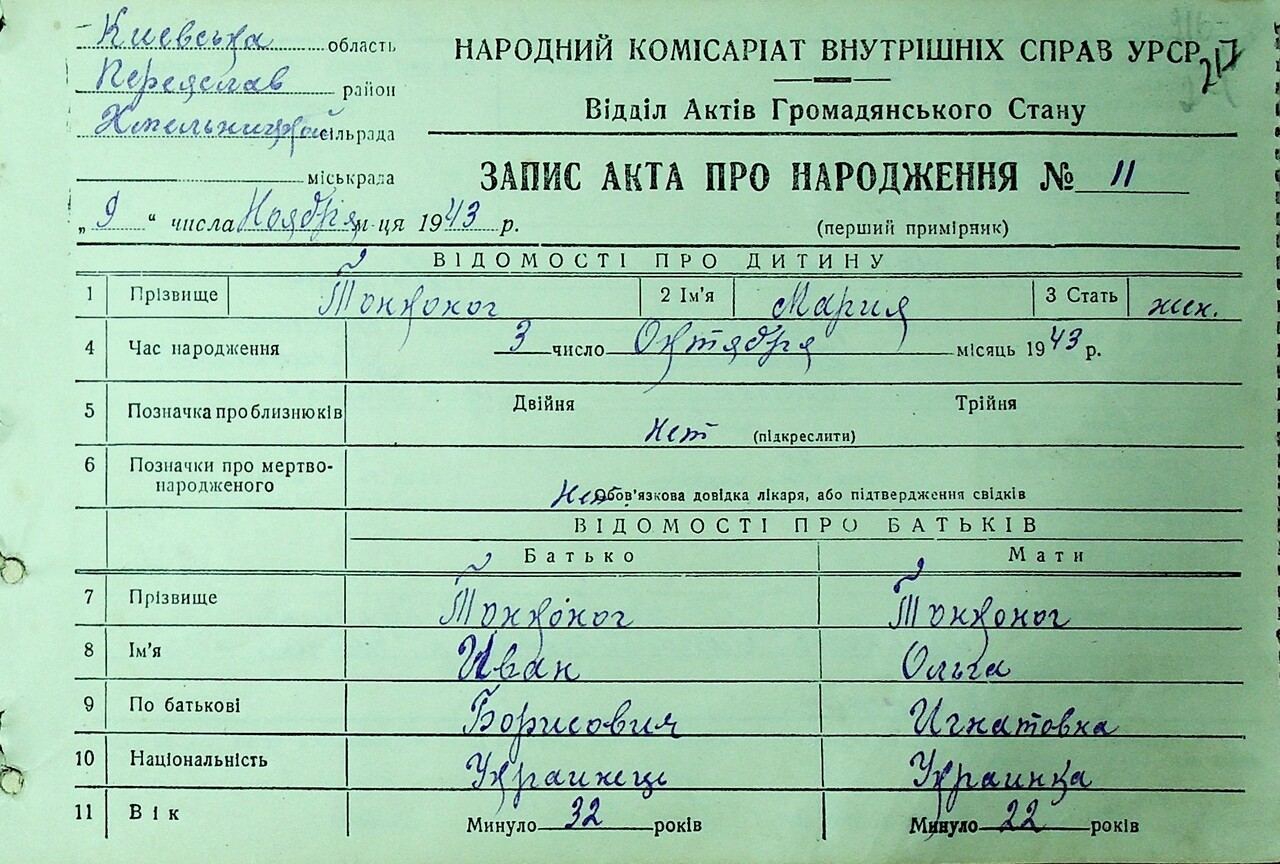 Киевська область
Переяслав район
Хмельницкой сільрада
міськрада
НАРОДНИЙ КОМІСАРІАТ ВНУТРІШНІХ СПРАВ УРСР
217
Відділ Актів Громадянського Стану
ЗАПИС АКТА ПРО НАРОДЖЕННЯ № 11
„ 9 “ числа Ноября м-ця 1943 р.
(перший примірник)
ВІДОМОСТІ ПРО ДИТИНУ
1 Прізвище Тонконог 2 Ім'я Мария 3 Стать жен.
4 Час народження 3 число Октября місяць 1943 р.
5 Позначка про близнюків Двійня Трійня
нет (підкреслити)
6 Позначки про мертвонародженого
нет Обов'язкова довідка лікаря, або підтвердження свідків
ВІДОМОСТІ ПРО БАТЬКІВ
Батько Мати
7 Прізвище Тонконог Тонконог
8 Ім'я Иван Ольга
9 По батькові Борисович Игнатовна
10 Національність Украинець Украинка
11 Вік Минуло 32 років Минуло 22 років